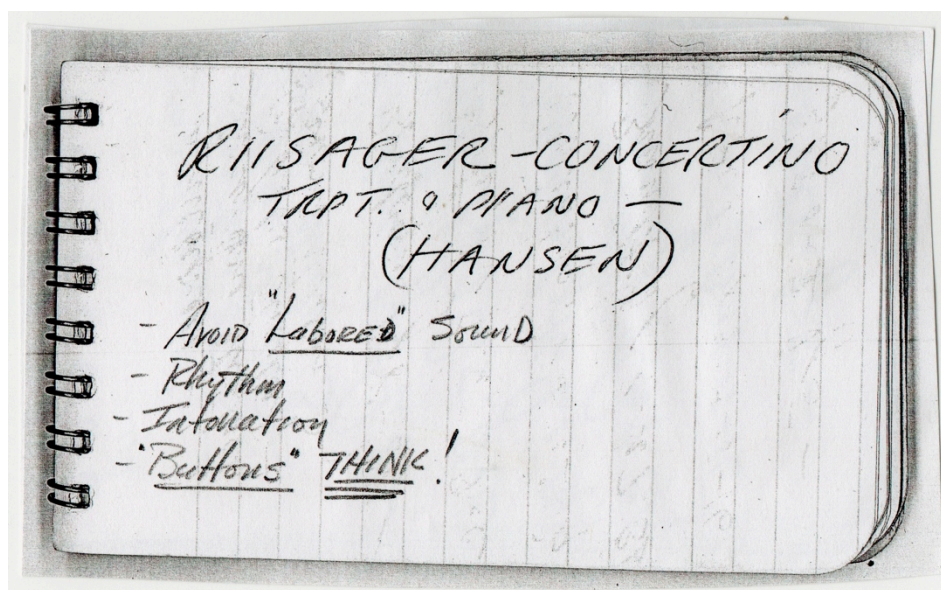 RIISAGER - CONCERTINO
TRPT. & PIANO —
(HANSEN)
- AVOID "LABORED" SOUND
- Rhythm
- Intonation
- "Buttons" THINK!